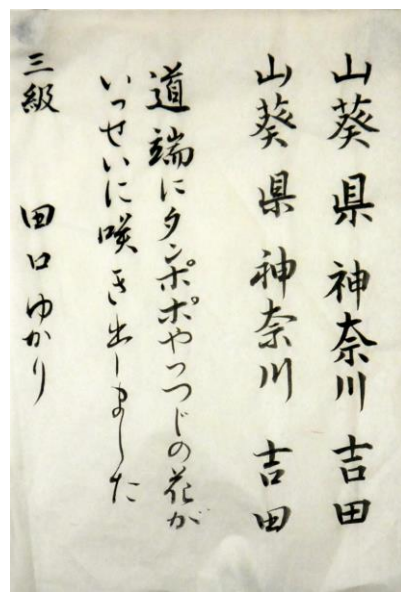 山葵県神奈川吉田
山葵県神奈川吉田
道端にタンポポやつつじの花が
いっせいに咲き出しました
三級 田口ゆかり